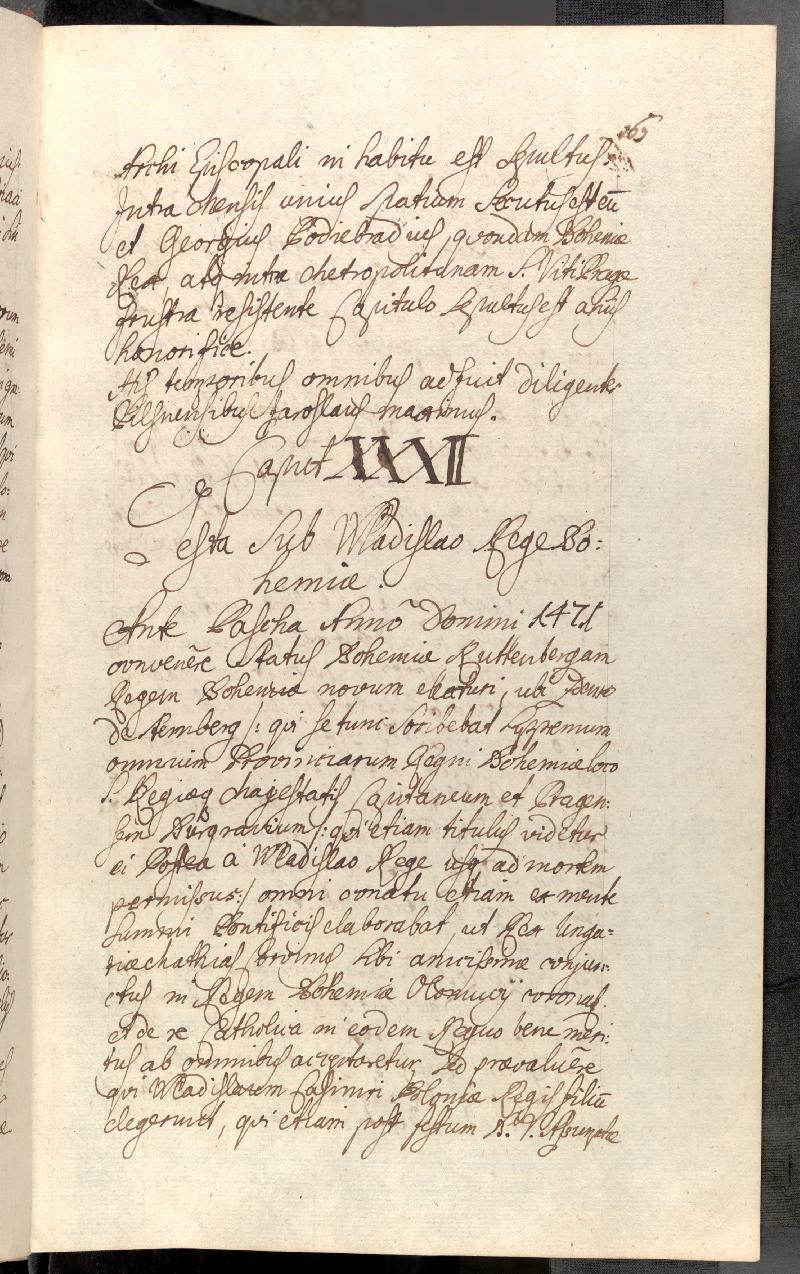 165
Archi Episcopali in habitu est sepultus.
Intra Mensis unius spatium secutus est eū
et Georgius Podiebradius, quondam Bohemiæ
Rex, atq intra Metropolitanam S. Viti Pragæ
frustra resistente Capitulo sepultus est
honorifice.
His temporibus omnibus adfuit diligenter
Pilsnensibus Jaroslaus maximus.
Caput XXXII
Gesta Sub Wladislao Rege Bo:
hemiæ.
Ante Pascha Anno Domini 1471
convenêre Status Bohemiæ Kuttenbergam
Regem Bohemiæ novum electuri, ubi Zdenco
de Sternberg /: qui se tunc scribebat supremum
omnium Provinciarum Regni Bohemiæ loco
S. Regiæq Majestatis Capitaneum et Pragen:
sem Burgravium /: qui etiam titulus videtur
ei Postea a Wladislao Rege usq ad mortem
permissus :/ omni conatu etiam ex mente
summi Pontificis elaborabat, ut Rex Unga=
riæ Mathias Corvinus sibi amicissime conjun:
ctus in Regem Bohemiæ Olomucij coronat.
et de re Catholica in eodem Regno bene meri:
tus ab omnibus acceptaretur, sed prævaluêre
qui Wladislaum Casimiri Poloniæ Regis filiū
elegerunt, qui etiam post festum B. V. Assumptæ